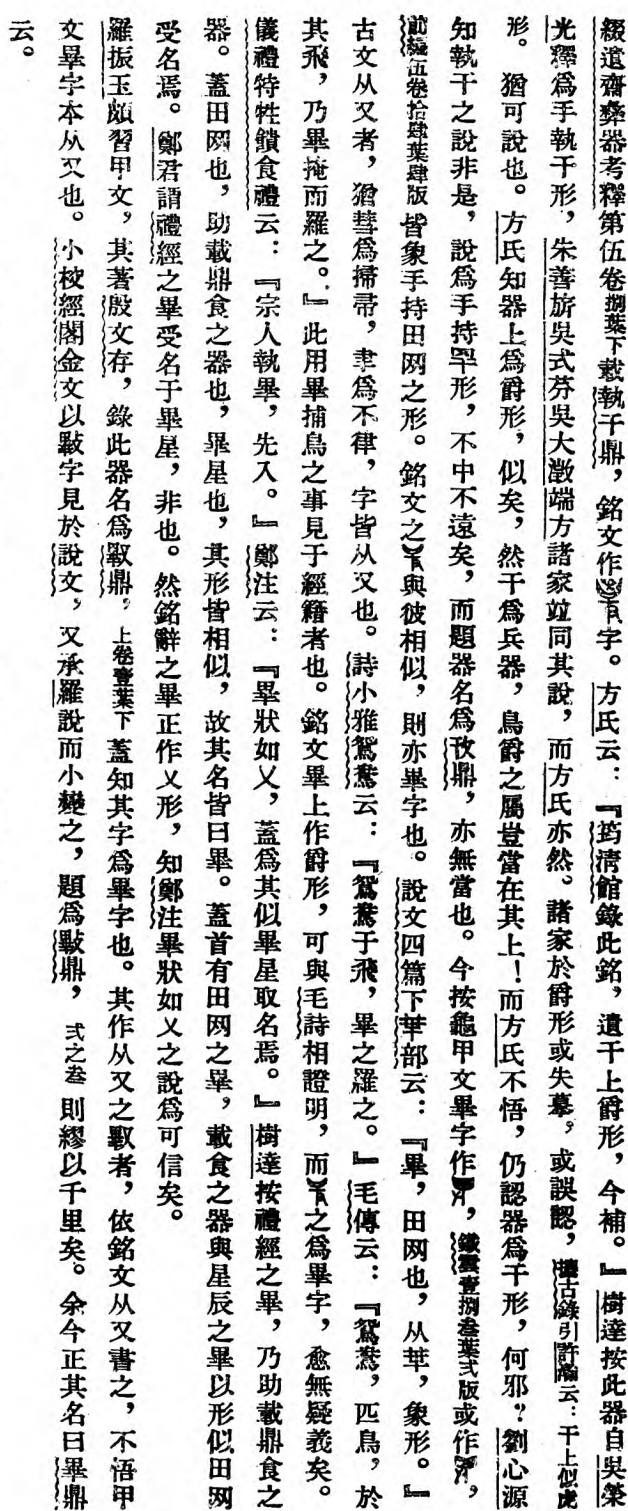 綴遺齋彝器考釋第伍卷捌葉下載執干鼎，銘文作字。方氏云：『筠清館錄此銘，遺干上爵形，今補。』樹達按此器自吳榮
光釋爲手執干形，朱善旂吳式芬吳大澂端方諸家竝同其說，而方氏亦然。諸家於爵形或失摹，或誤認，攗古錄引許瀚云：干上似虎
形。猶可說也。方氏知器上爲爵形，似矣，然干爲兵器，鳥爵之屬豈當在其上！而方氏不悟，仍認器爲干形，何邪？劉心源
知執干之說非是，說爲手持𠦒形，不中不遠矣，而題器名爲㪇鼎，亦無當也。今按龜甲文畢字作，鐵雲壹捌叁葉弍版或作，
前編伍卷拾肆葉肆版皆象手持田网之形。銘文之與彼相似，則亦畢字也。說文四篇下𠦒部云：『畢，田网也，从𠦒，象形。』
古文从又者，猶彗爲掃帚，聿爲不律，字皆从又也。詩小雅鴛鴦云：『鴛鴦于飛，畢之羅之。』毛傳云：『鴛鴦，匹鳥，於
其飛，乃畢掩而羅之。』此用畢捕鳥之事見于經籍者也。銘文畢上作爵形，可與毛詩相證明，而之爲畢字，愈無疑義矣。
儀禮特牲饋食禮云：『宗人執畢，先入。』鄭注云：『畢狀如叉，蓋爲其似畢星取名焉。』樹達按禮經之畢，乃助載鼎食之
器。蓋田网也，助載鼎食之器也，畢星也，其形皆相似，故其名皆曰畢。蓋首有田网之畢，載食之器與星辰之畢以形似田网
受名焉。鄭君謂禮經之畢受名于畢星，非也。然銘辭之畢正作叉形，知鄭注畢狀如叉之說爲可信矣。
羅振玉頗習甲文，其著殷文存，錄此器名爲㪤鼎，上卷壹葉下蓋知其字爲畢字也。其作从又之㪤者，依銘文从又書之，不悟甲
文畢字本从又也。小校經閣金文以㪤字見於說文，又承羅說而小變之，題爲㪤鼎，弍之叁則繆以千里矣。余今正其名曰畢鼎
云。